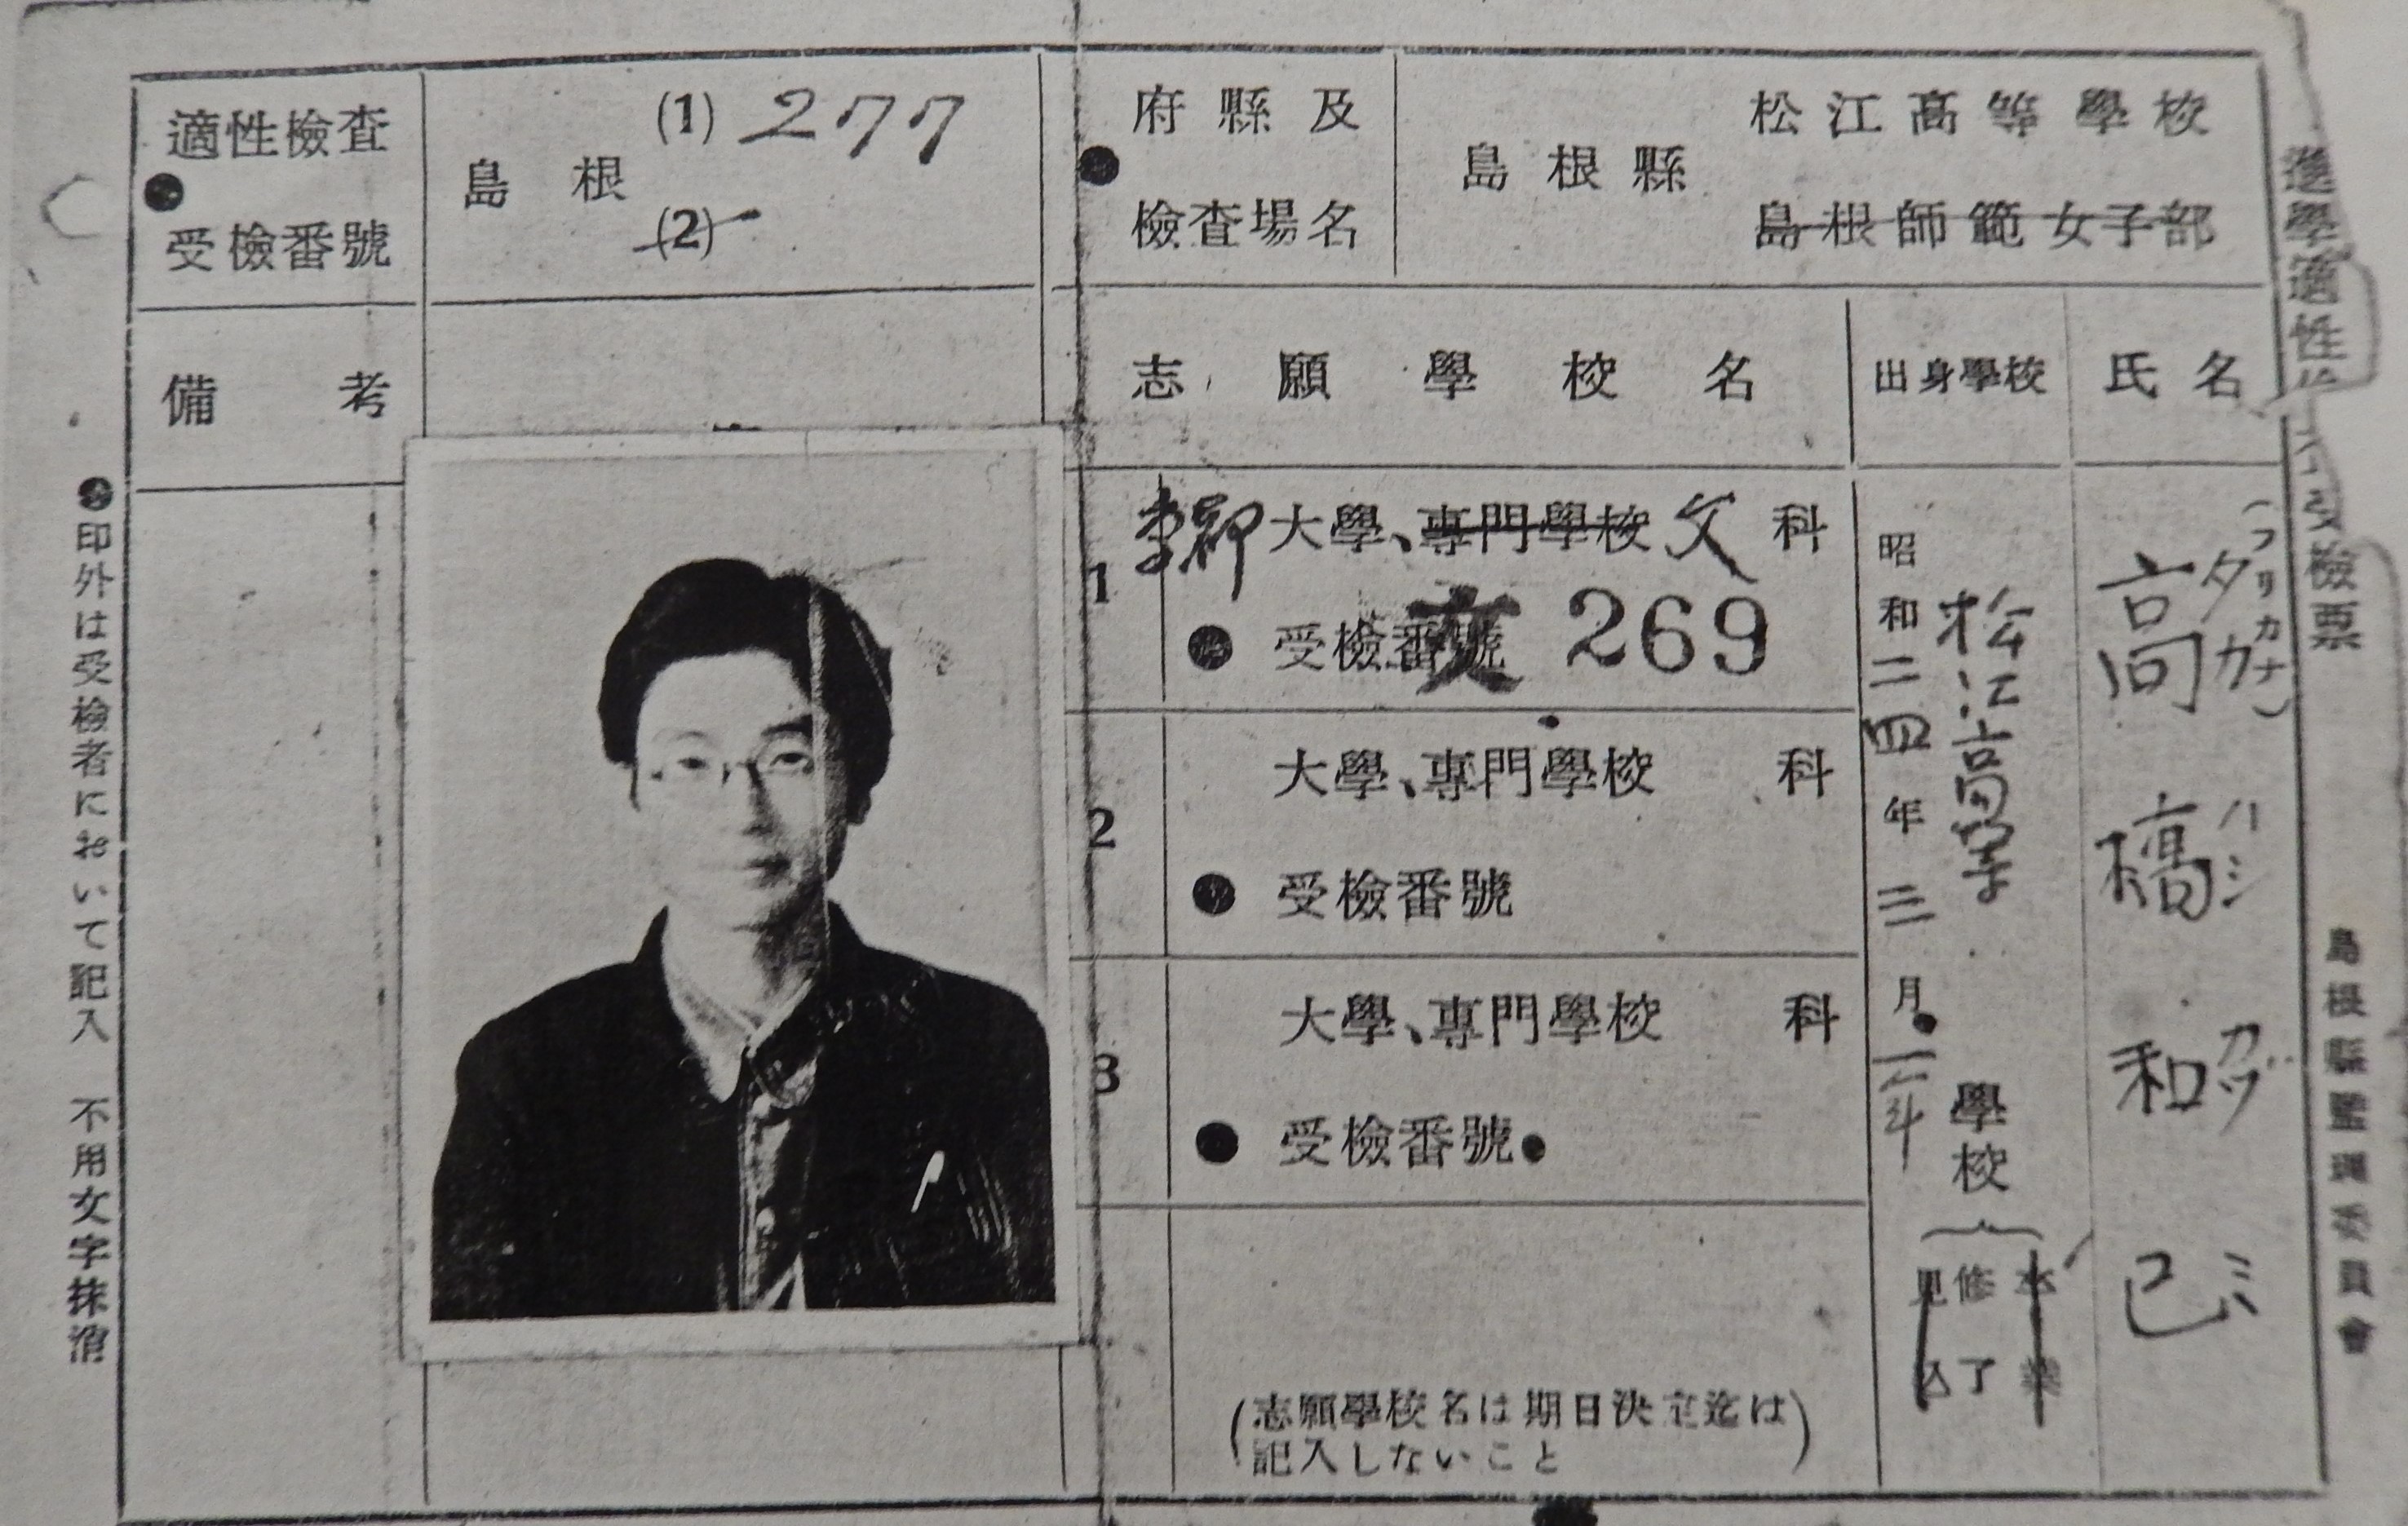 進學適性
引檢票
島根縣監理委員會
適性檢査
受檢番號
島根
(1) 277
(2)
府縣及
檢査場名
島根縣
松江高等學校
島根師範女子部
備考
志願學校名
出身學校
氏名
1
大學、專門學校 文 科
受檢番號
文 269
2
大學、專門學校 科
受檢番號
3
大學、專門學校 科
受檢番號
昭和二四年三月
松江高等
學校
卒業
修了
見込
(フリカナ)
高橋和己
タカ ハシ カヅ ミ
(志願學校名は期日決定迄は
記入しないこと)
印外は受檢者において記入 不用文字抹消